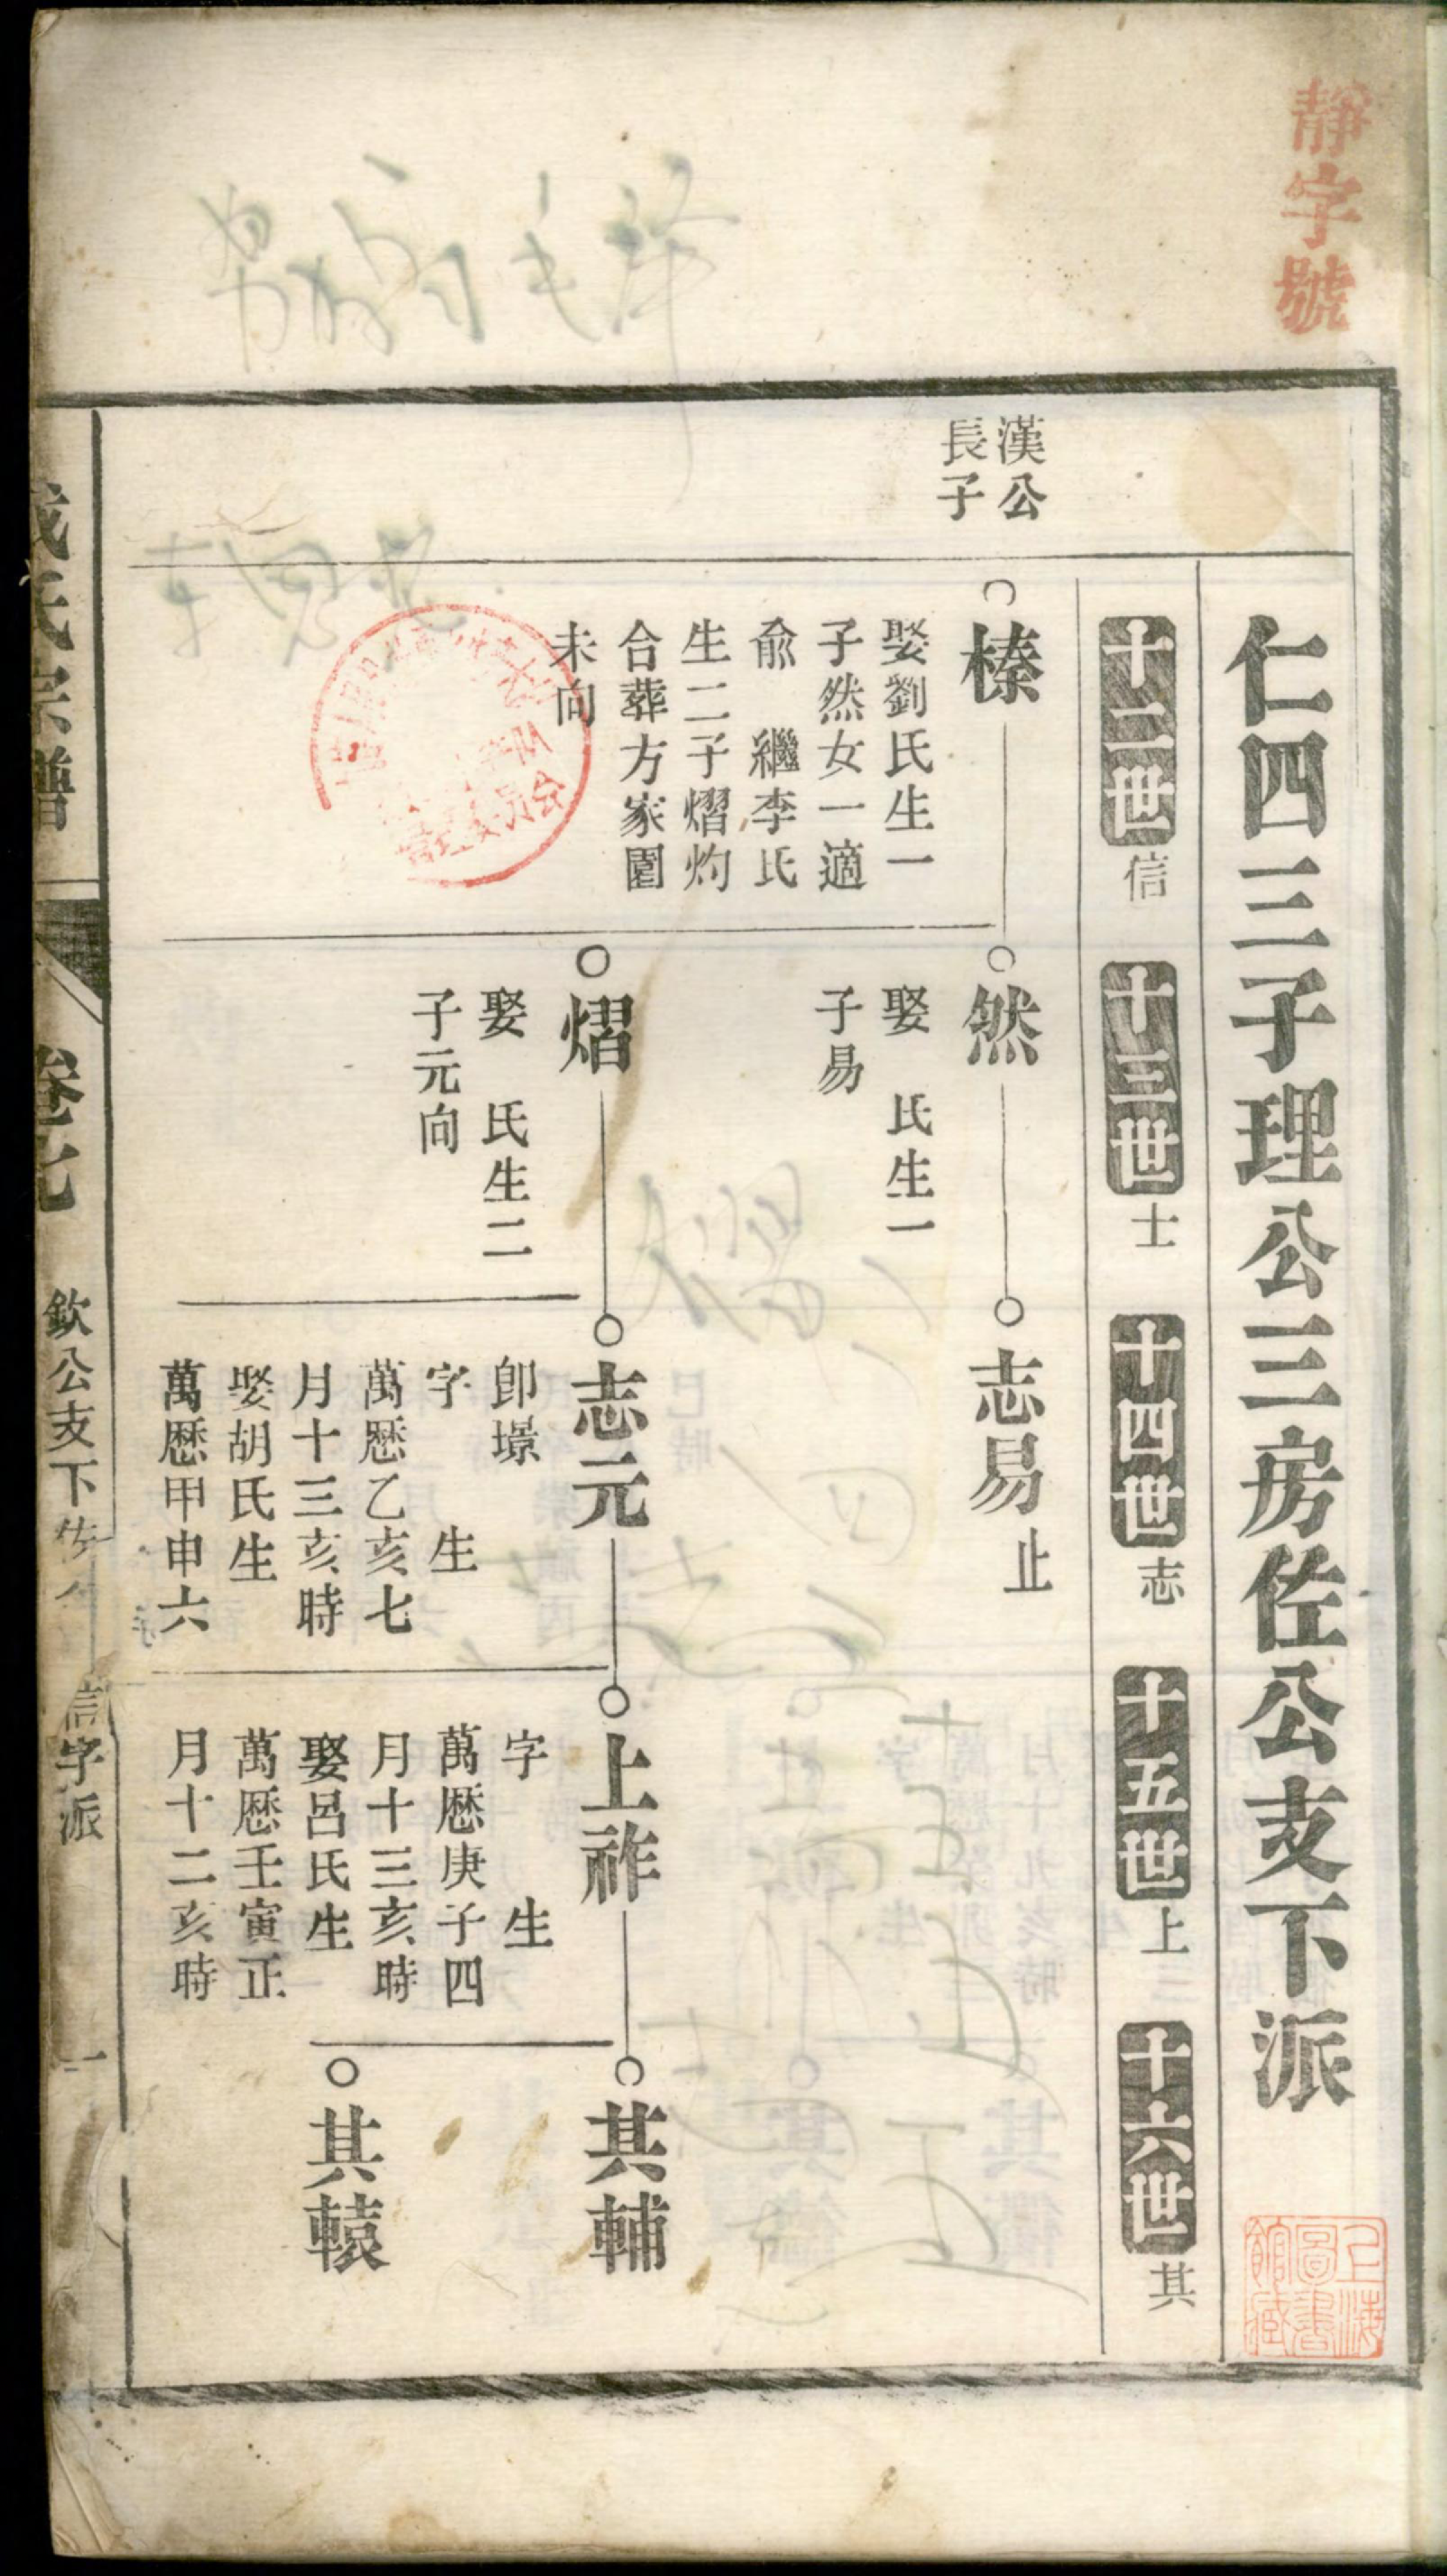 靜字號
仁四三子理公三房佐公支下派
十二世信
十三世士
十四世志
十五世上
十六世其
漢公
長子
榛
娶劉氏生一
子然女一適
俞 繼李氏
生二子熠灼
合葬方家園
未向
然
娶 氏生一
子易
志易止
熠
娶 氏生二
子元向
志元
卽璟
字 生
萬歷乙亥七
月十三亥時
娶胡氏生
萬歷甲申六
上祚
字 生
萬歷庚子四
月十三亥時
娶呂氏生
萬歷壬寅正
月十二亥時
其輔
其轅
氏宗譜
欽公支下佐
信字派
一
上海
圖書
館藏